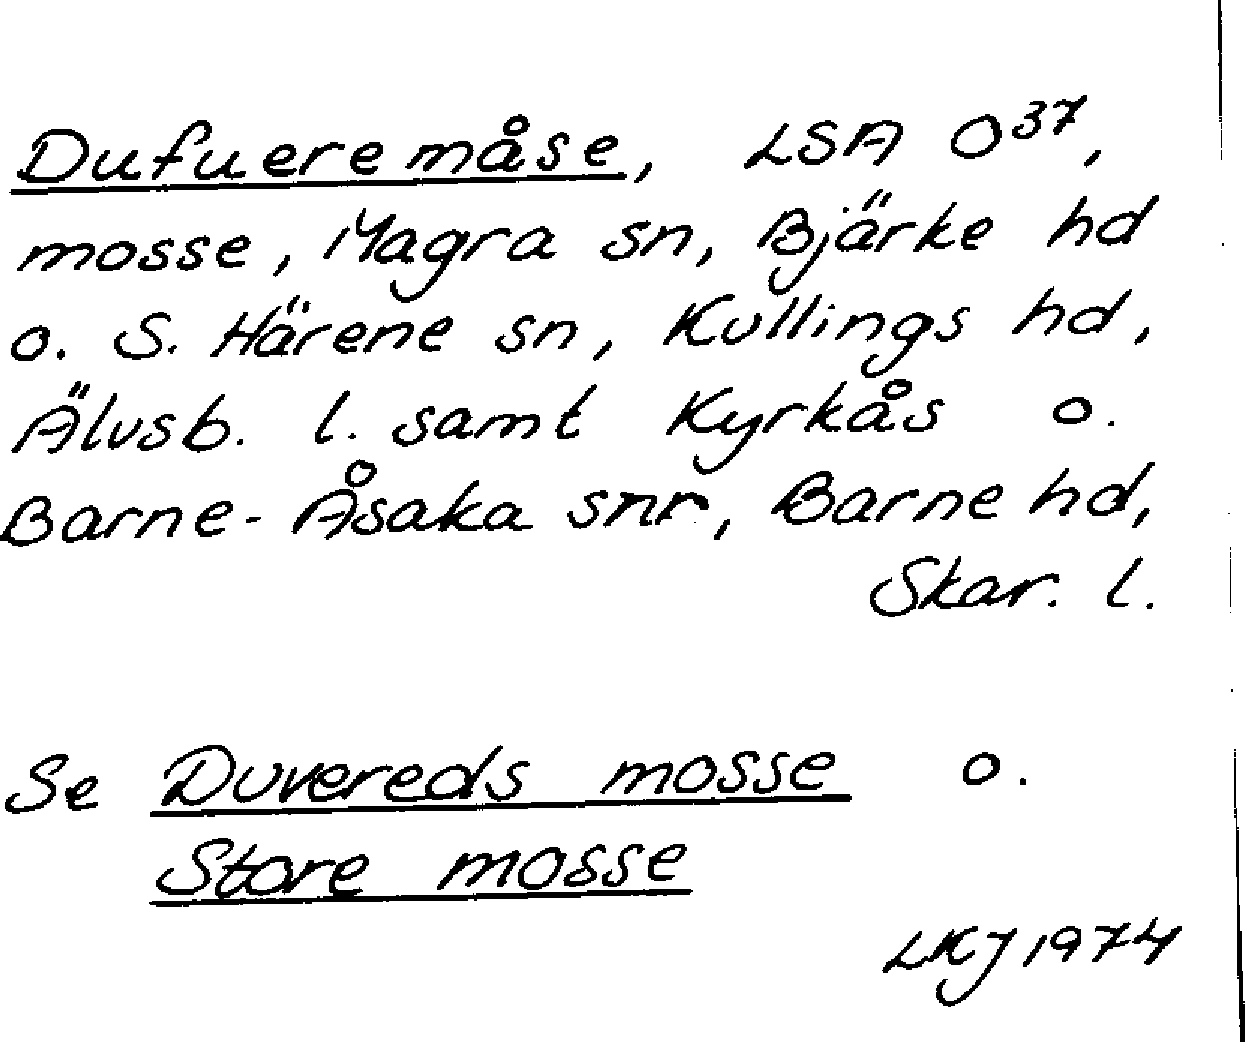 Dufueremåse, LSA O³⁷,
mosse, Magra sn, Bjärke hd
o. S. Härene sn, Kullings hd,
Älvsb. l. samt Kyrkås o.
Barne-Åsaka snr, Barne hd,
Skar. l.
Se Duvereds mosse o.
Store mosse
LKJ 1974